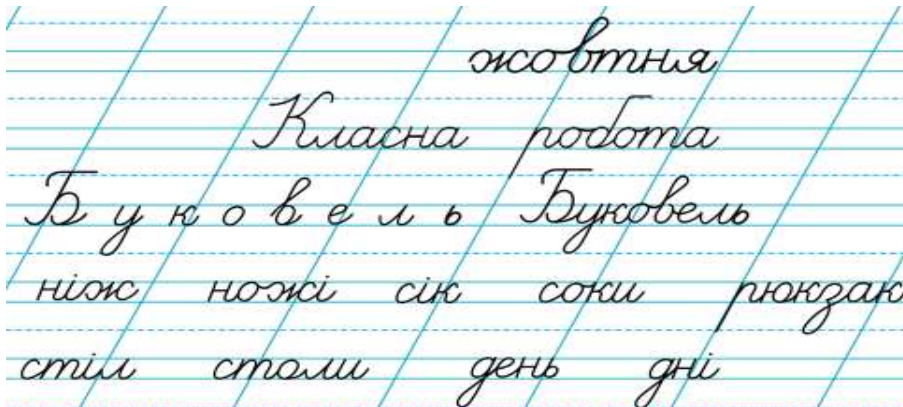 жовтня
Класна робота
Б у к о в е л ь Буковель
ніж ножі сік соки рюкзак
стіл столи день дні